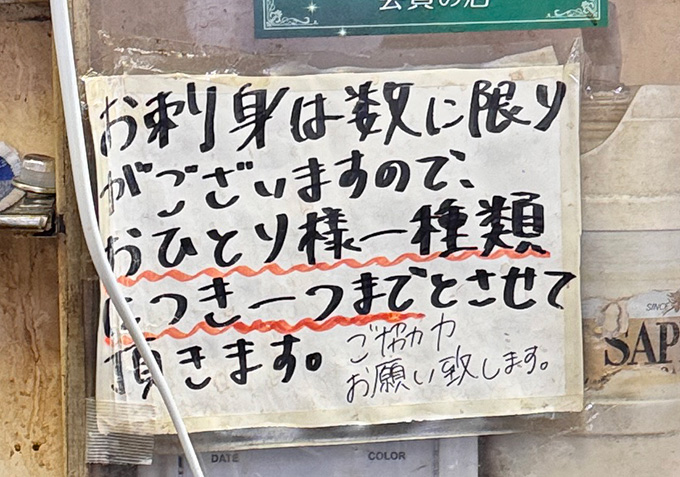 会員の店
お刺身は数に限り
がございますので、
おひとり様一種類
につき一つまでとさせて
頂きます。
ご協力
お願い致します。
SINCE
SAP
DATE
COLOR